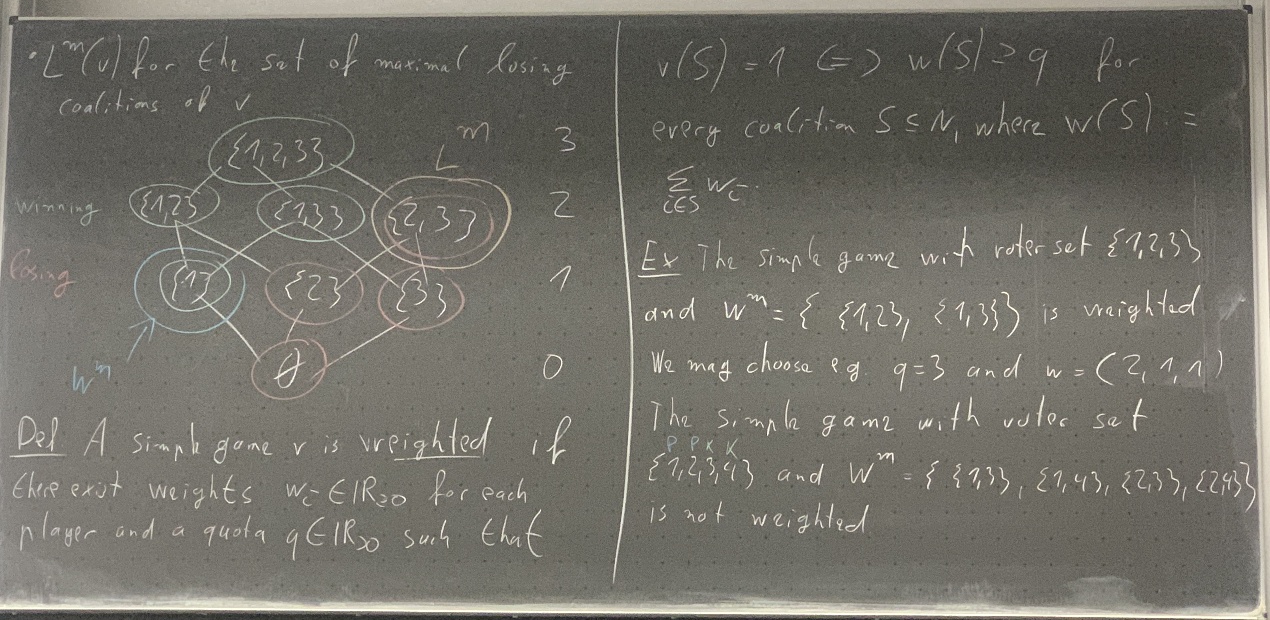 • L^m(v) for the set of maximal losing
coalitions of v
{1,2,3} L^m 3
winning {1,2} {1,3} {2,3} 2
losing {1} {2} {3} 1
W^m ∅ 0
Def A simple game v is weighted if
there exist weights w_i ∈ ℝ≥0 for each
player and a quota q ∈ ℝ>0 such that
v(S) = 1 <=> w(S) ≥ q for
every coalition S ⊆ N, where w(S) :=
∑_{i∈S} w_i.
Ex The simple game with voter set {1,2,3}
and W^m = { {1,2}, {1,3} } is weighted
We may choose e.g. q=3 and w = (2,1,1)
The simple game with voter set
P P K K
{1,2,3,4} and W^m = { {1,3}, {1,4}, {2,3}, {2,4} }
is not weighted